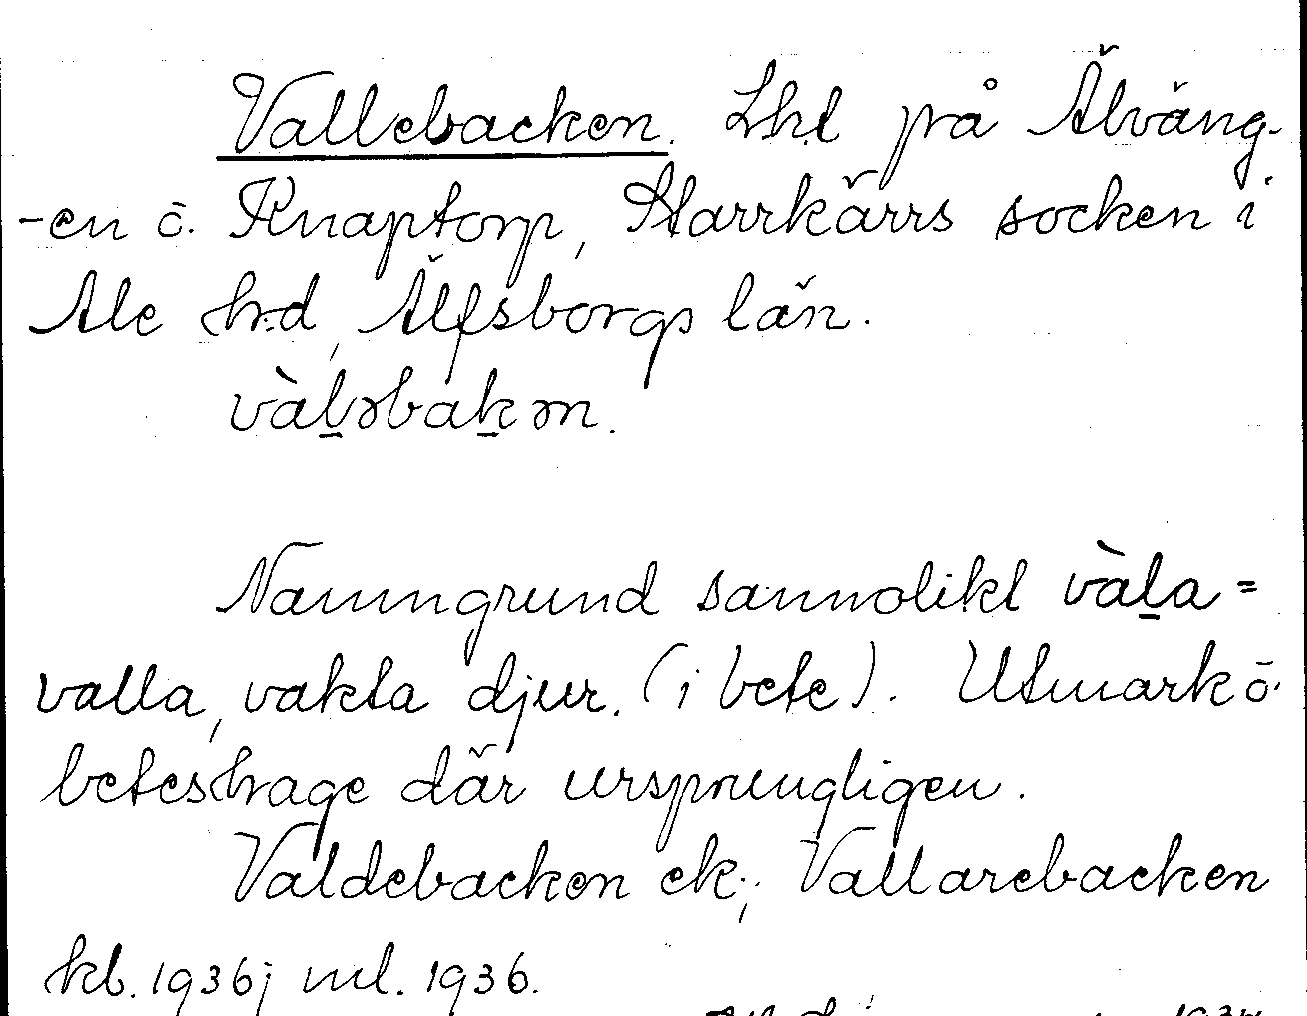 Vallebacken. Lht på Älväng-
-en o. Knaptorp, Starrkärrs socken i
Ale hrd, Älfsborgs län.
vàḻəbaḵən.
Namngrund sannolikt vàḻa =
valla, vakta djur. (i bete). Utmark o.
beteshage där ursprungligen.
Valdebacken ek.; Vallarebacken
kb. 1936; ml. 1936.